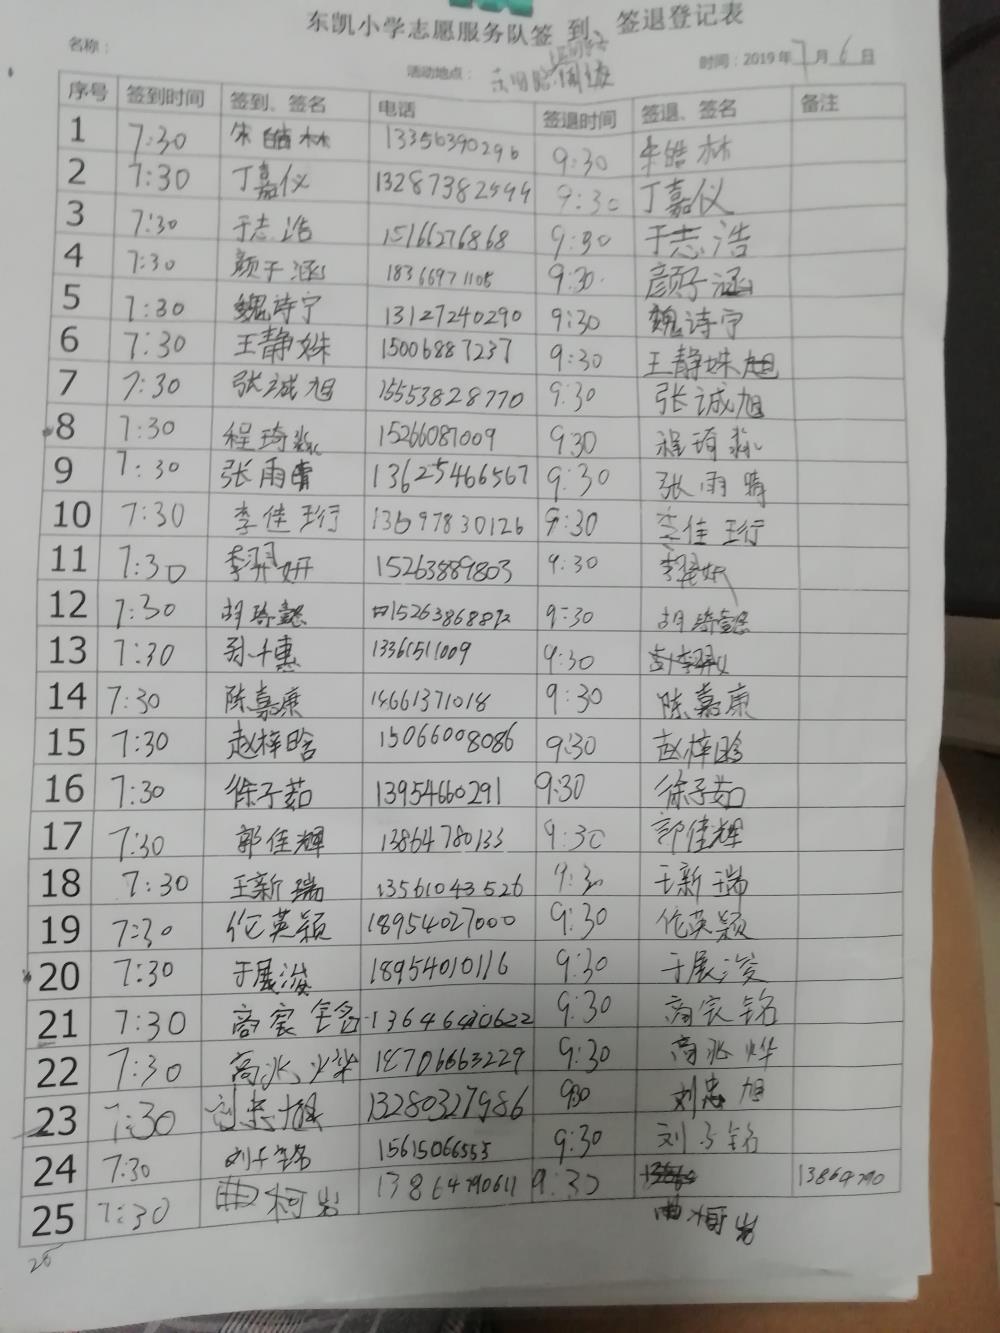 东凯小学志愿服务队签 到、签退登记表
名称： 活动地点： 时间：2019年7月6日
序号 签到时间 签到、签名 电话 签退时间 签退、签名 备注
1 7:30 朱皓林 13356390296 9:30 朱皓林
2 7:30 丁嘉仪 13287382594 9:30 丁嘉仪
3 7:30 于志浩 15166276868 9:30 于志浩
4 7:30 颜子涵 18366971105 9:30 颜子涵
5 7:30 魏诗宁 13127240290 9:30 魏诗宁
6 7:30 王静姝 15006887237 9:30 王静姝
7 7:30 张诚旭 15553828770 9:30 张诚旭
8 7:30 程琦淼 15266087009 9:30 程琦淼
9 7:30 张雨晴 13625466567 9:30 张雨晴
10 7:30 李佳珩 13697830126 9:30 李佳珩
11 7:30 李羿妍 15263889803 9:30
12 7:30 胡琦懿 15263868892 9:30 胡琦懿
13 7:30 孙千惠 13361511009 9:30
14 7:30 陈嘉康 18661371018 9:30 陈嘉康
15 7:30 赵梓晗 15066008086 9:30 赵梓晗
16 7:30 徐子茹 13954660291 9:30 徐子茹
17 7:30 郭佳辉 13864780133 9:30 郭佳辉
18 7:30 王新瑞 13561043526 9:30 王新瑞
19 7:30 英颖 18954027000 9:30 英颖
20 7:30 于展浚 18954010116 9:30 于展浚
21 7:30 商宸铭 13646430622 9:30 商宸铭
22 7:30 高兆烨 18706663229 9:30 高兆烨
23 7:30 刘忠旭 13280327986 930 刘忠旭
24 7:30 刘子铭 15615066555 9:30 刘子铭
25 7:30 曲柯岩 13864790611 9:30 曲柯岩 13864790
26